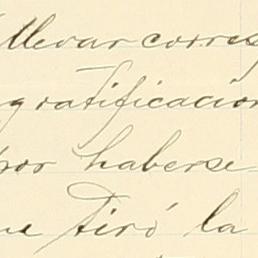 llevar corres
gratificacion
por haberse
ue tiró la